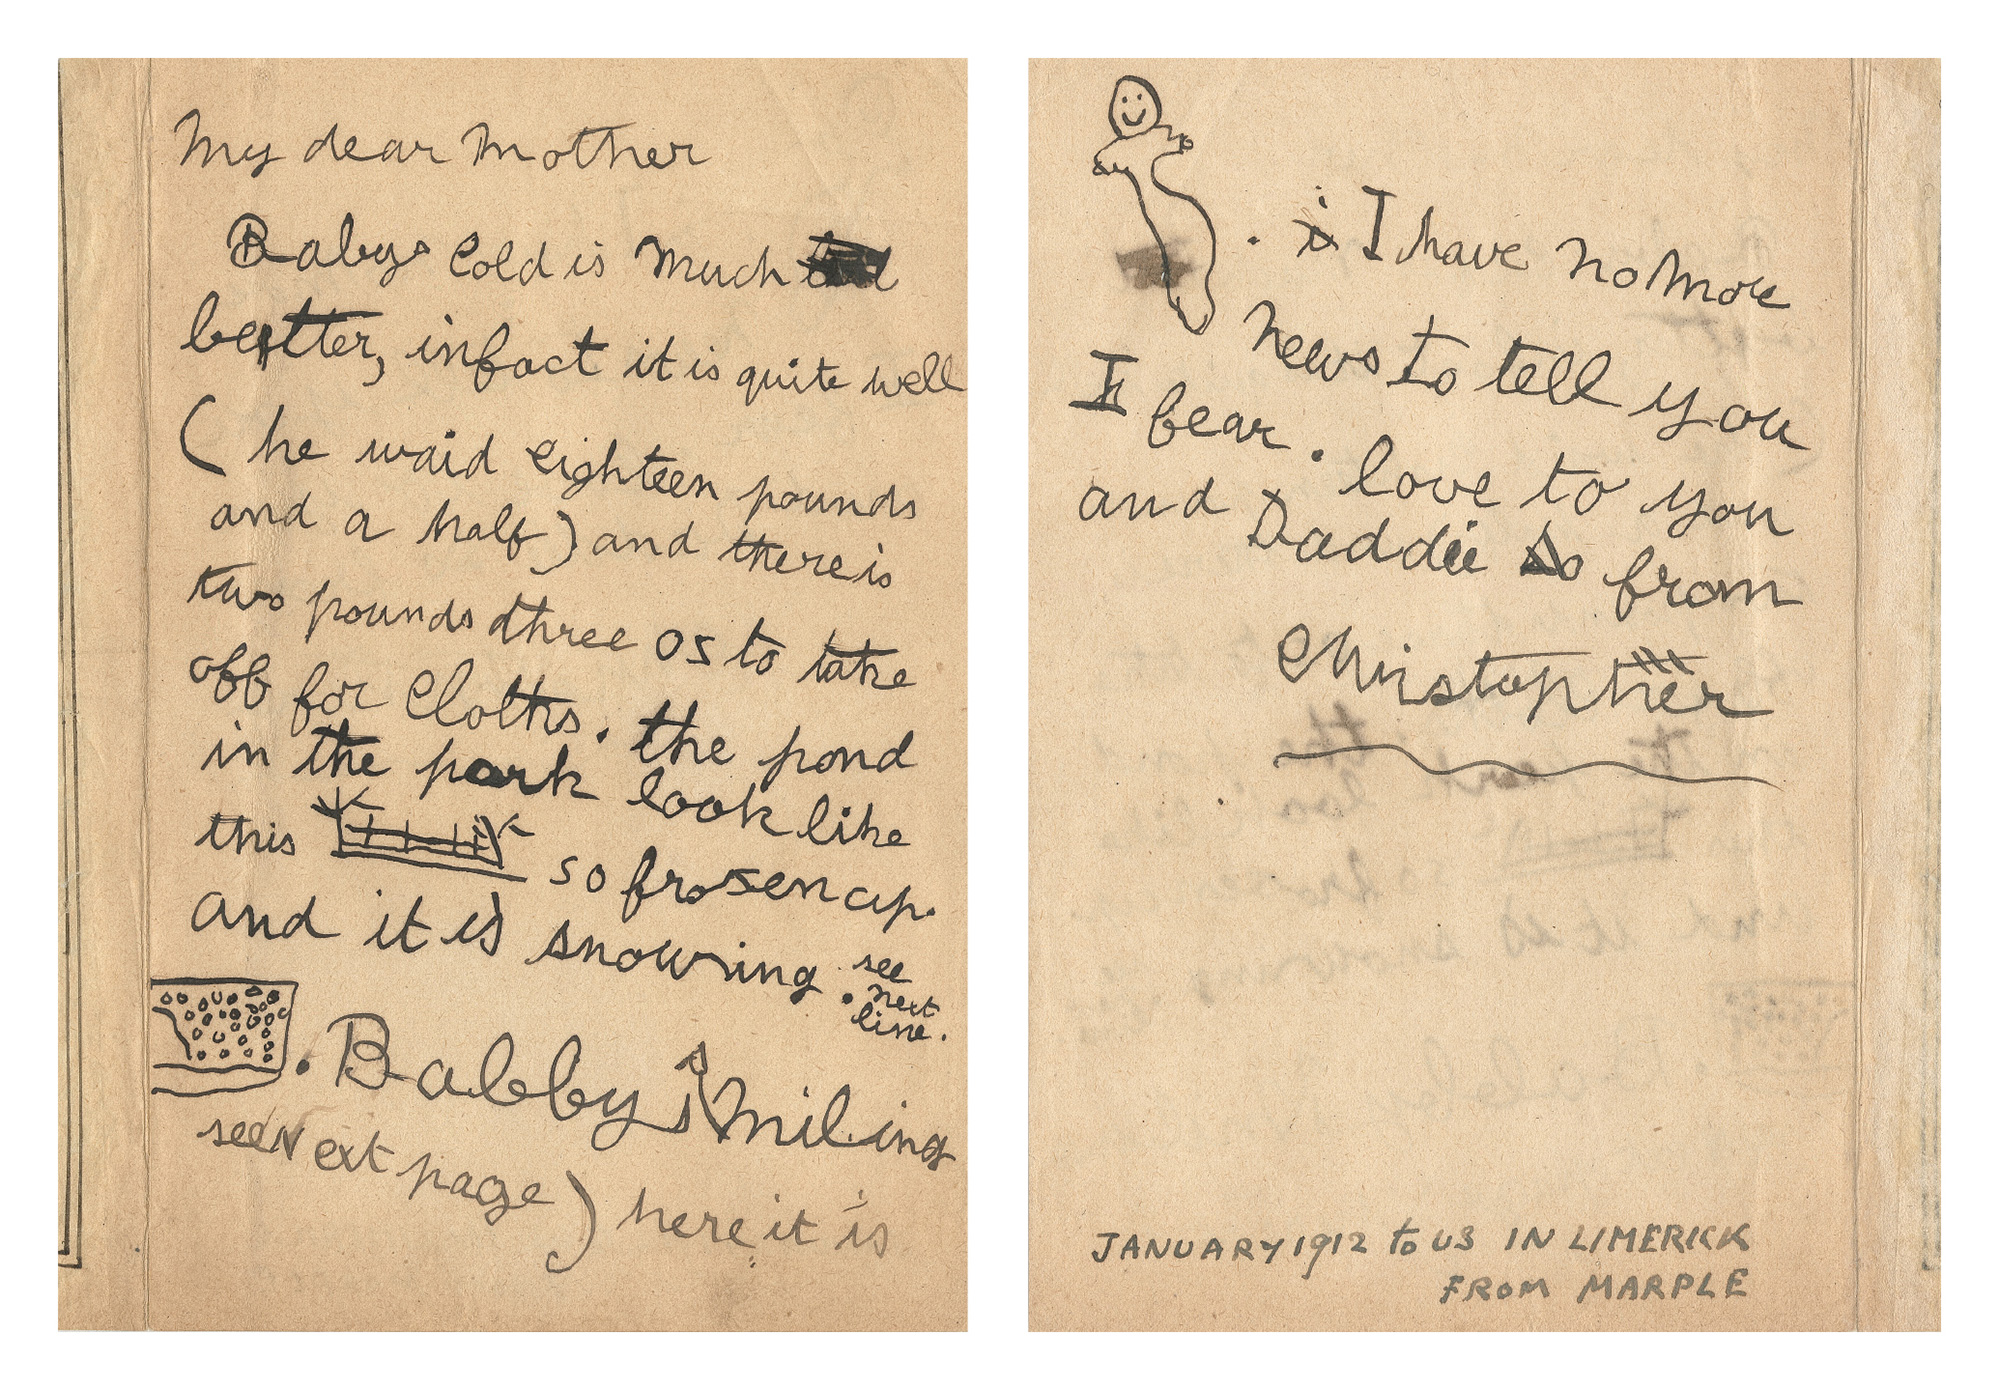 My dear Mother
Babys cold is much
better, infact it is quite well
( he waid eighteen pounds
and a half) and there is
two pounds three os to take
off for cloths. the pond
in the park look like
this so frosen up.
and it is snowing. see
next
line.
. Babby smiling
see Next page) here it is
. I have no more
news to tell you
I fear. love to you
and Daddie from
Christopher
JANUARY 1912 to US IN LIMERICK
FROM MARPLE